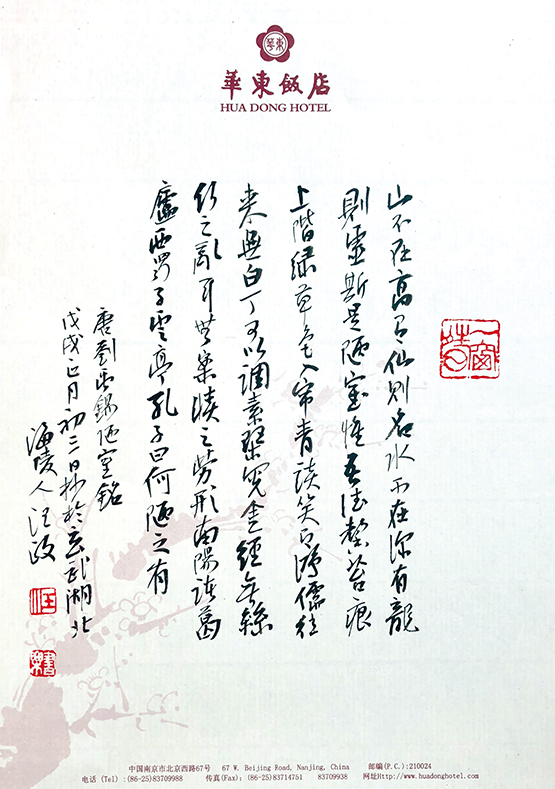 華東飯店
HUA DONG HOTEL
山不在高有仙则名水不在深有龍
則靈斯是陋室惟吾德馨苔痕
上階绿草色入帘青談笑有鴻儒往
来無白丁可以調素琴閱金經無絲
竹之亂耳無案牘之勞形南陽諸葛
廬西蜀子雲亭孔子曰何陋之有
唐劉禹錫陋室銘
戊戌正月初三日抄於玄武湖北
海陵人汪政
中国南京市北京西路67号 67 W. Beijing Road, Nanjing, China 邮编(P.C.):210024
电话 (Tel) :(86-25)83709988 传真(Fax): (86-25)83714751 83709938 网址Http://www.huadonghotel.com